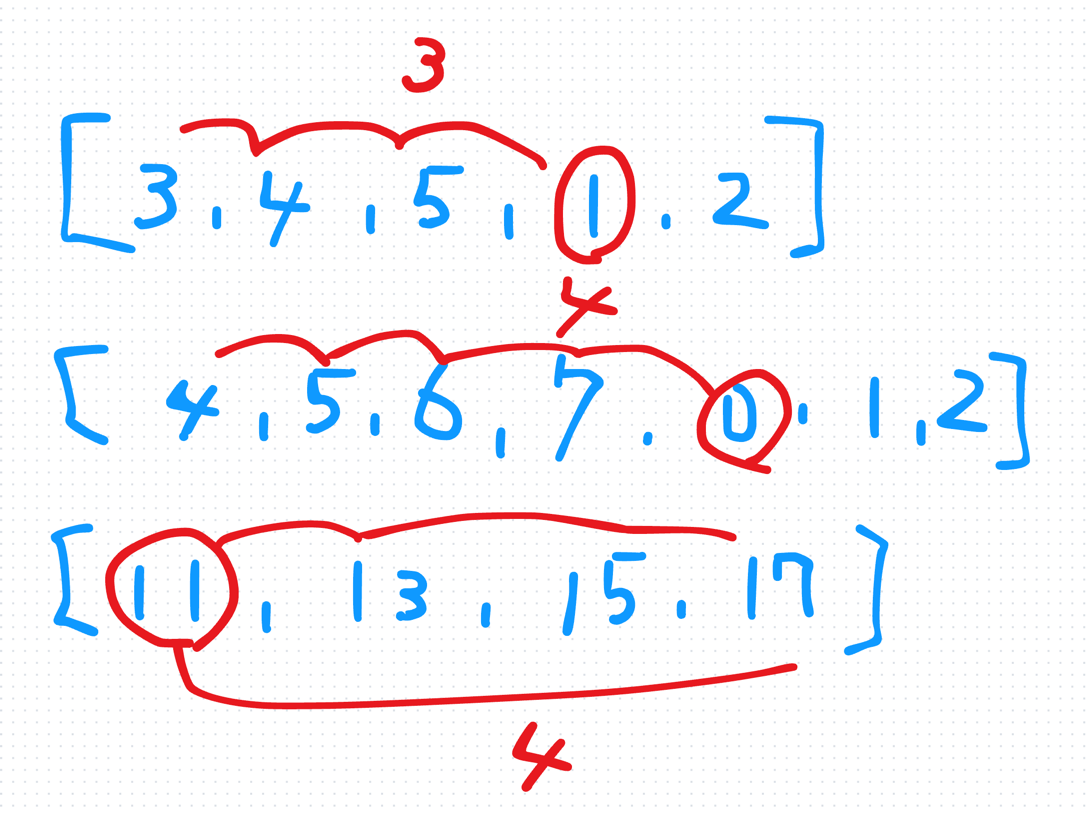 3
[3,4,5,1,2]
4
[4,5,6,7,0,1,2]
[11,13,15,17]
4